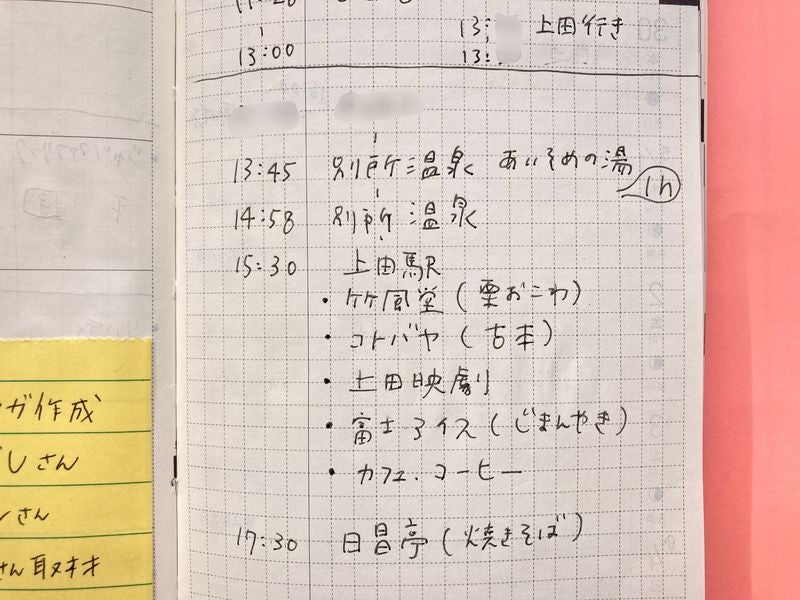 13:00
13:
上田行き
13:
13:45 別所温泉 あいそめの湯
1h
14:58 別所温泉
15:30 上田駅
・竹風堂(栗おこわ)
・コトバヤ(古本)
・上田映劇
・富士アイス(じまんやき)
・カフェ・コーヒー
17:30 日昌亭(焼きそば)
ガ作成
しさん
さん
さん取材